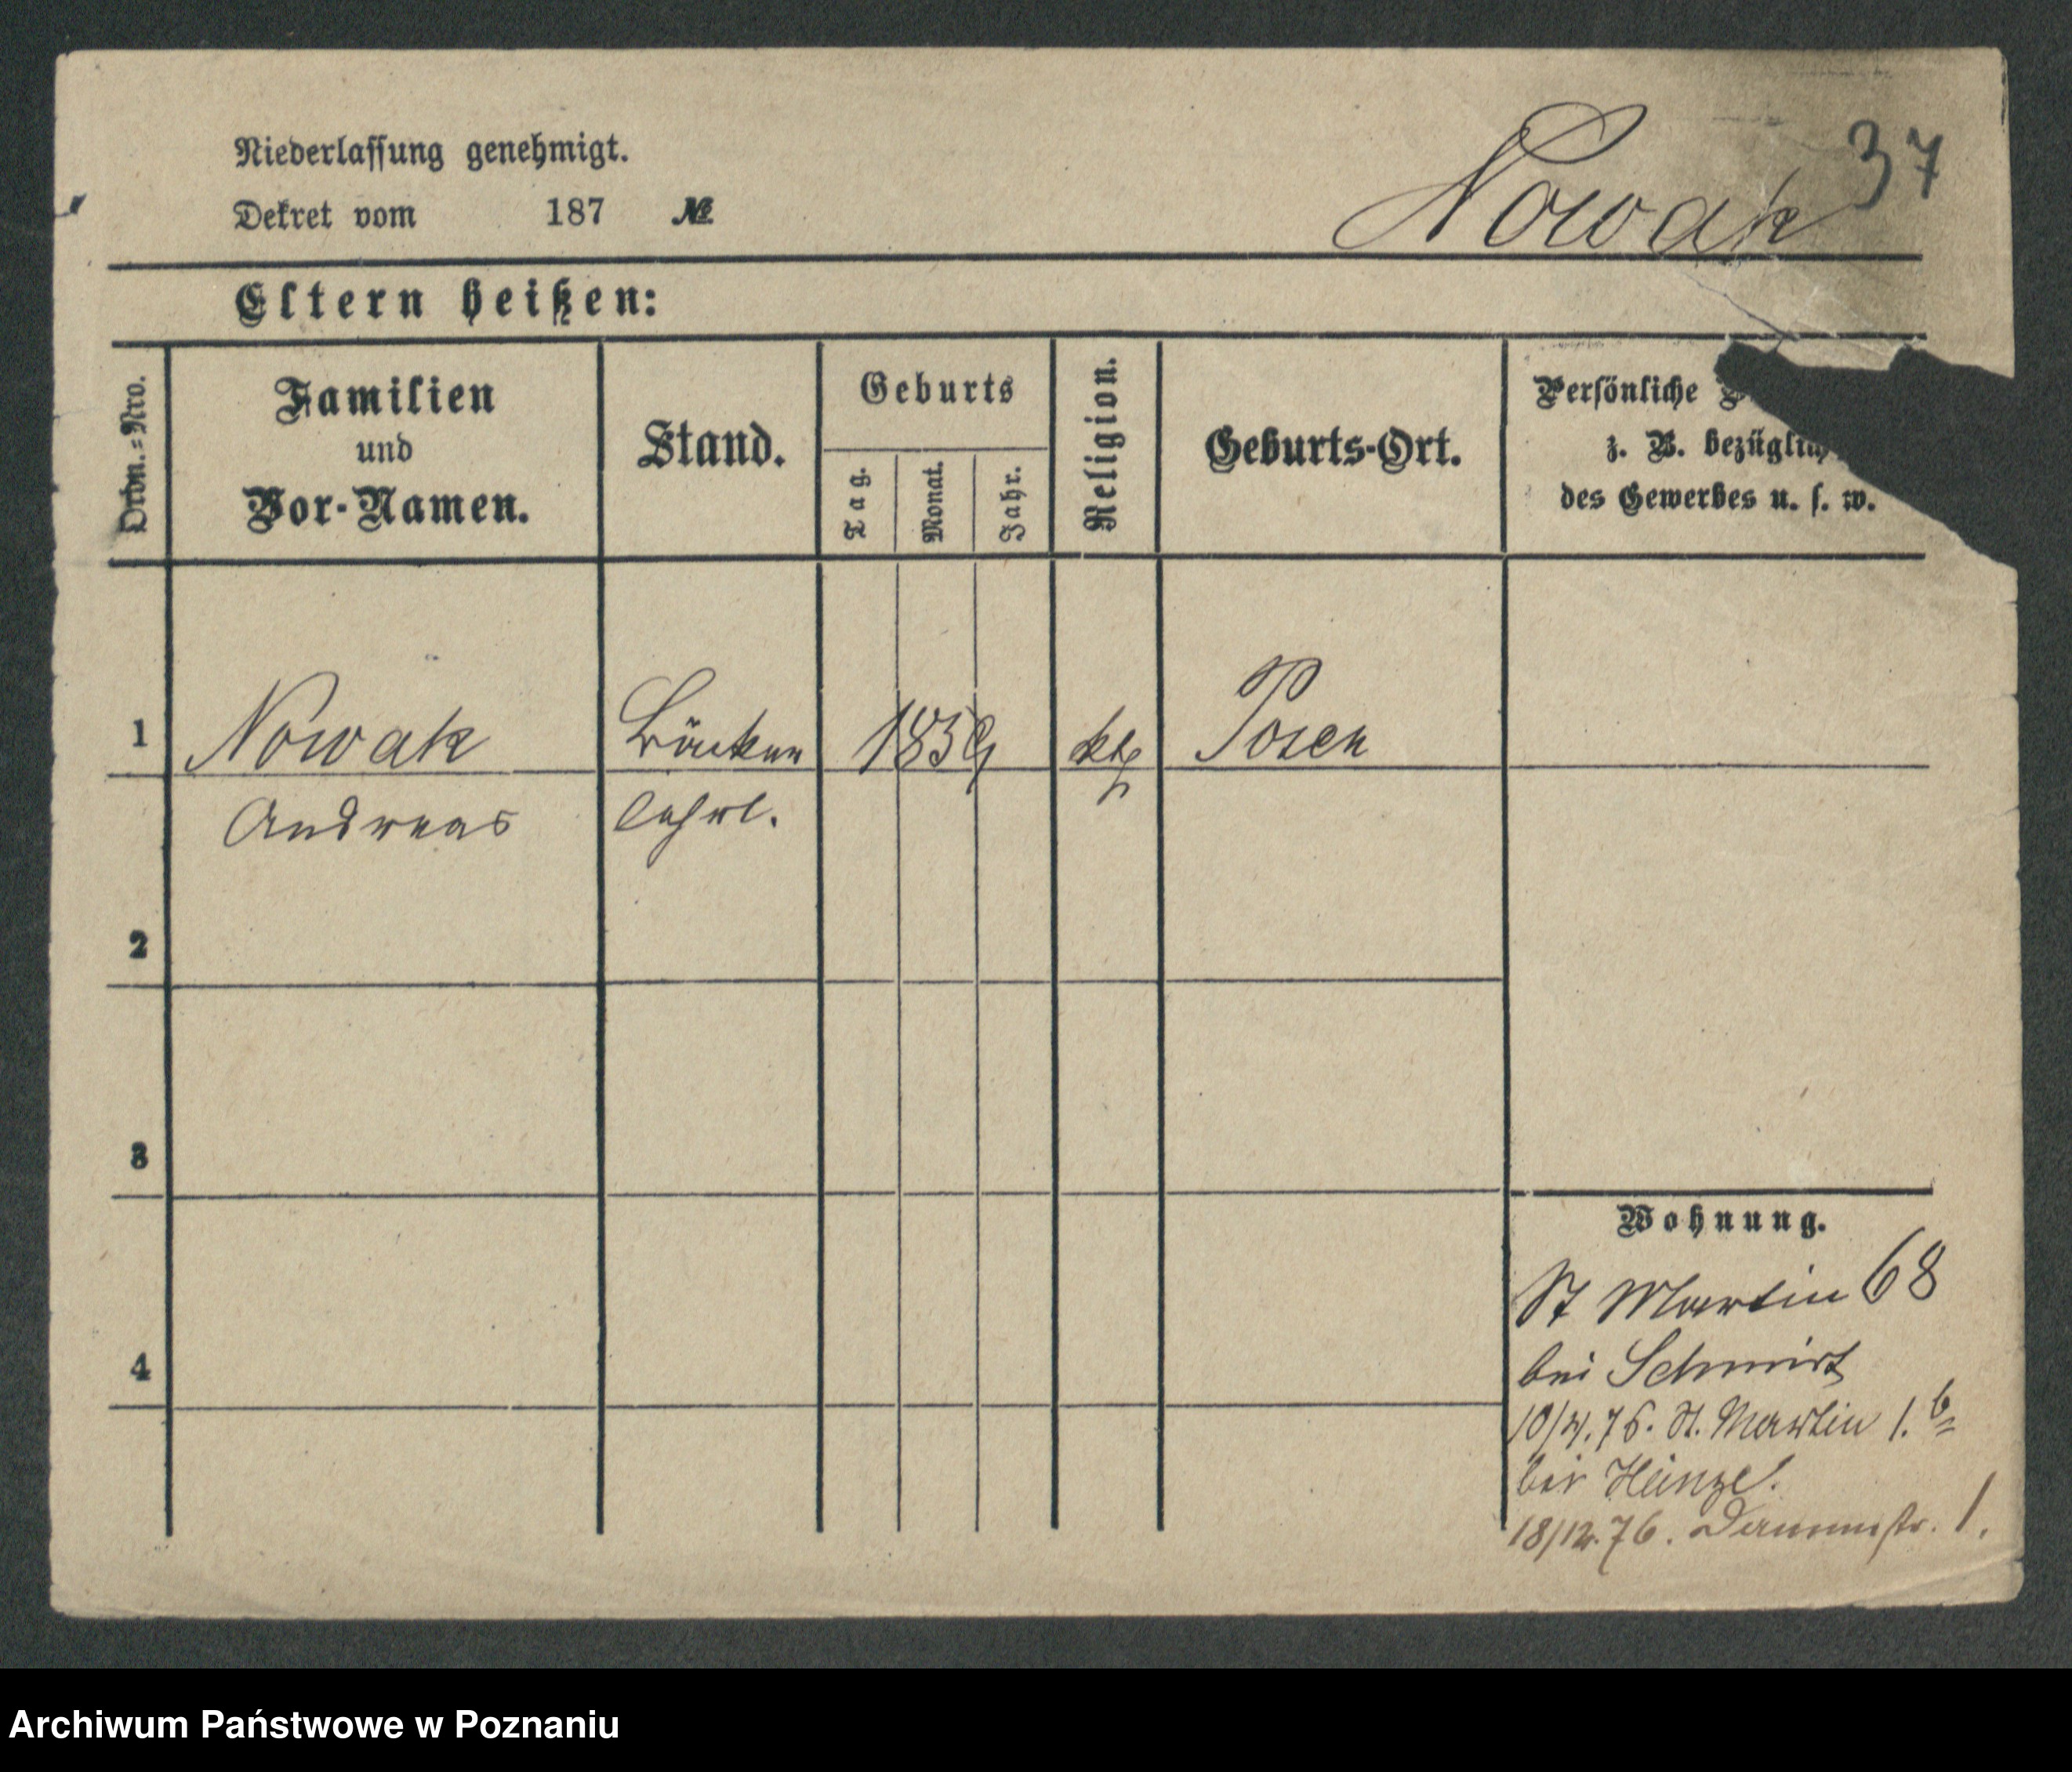 37
Niederlassung genehmigt.
Dekret vom 187 №
Nowak
Eltern heißen:
Ordn.=Nro.
Familien
und
Vor-Namen.
Stand.
Geburts
Tag.
Monat.
Jahr.
Religion.
Geburts-Ort.
Persönliche
z. B.
des Gewerbes u. s. w.
1
Nowak
Andreas
Bäcker
lehrl.
1859
kth
Posen
2
3
4
Wohnung.
St Martin 68
bei Schmidt
St. Martin 1.
bei Heinze.
18/12.76. Dammstr. 1.
Archiwum Państwowe w Poznaniu